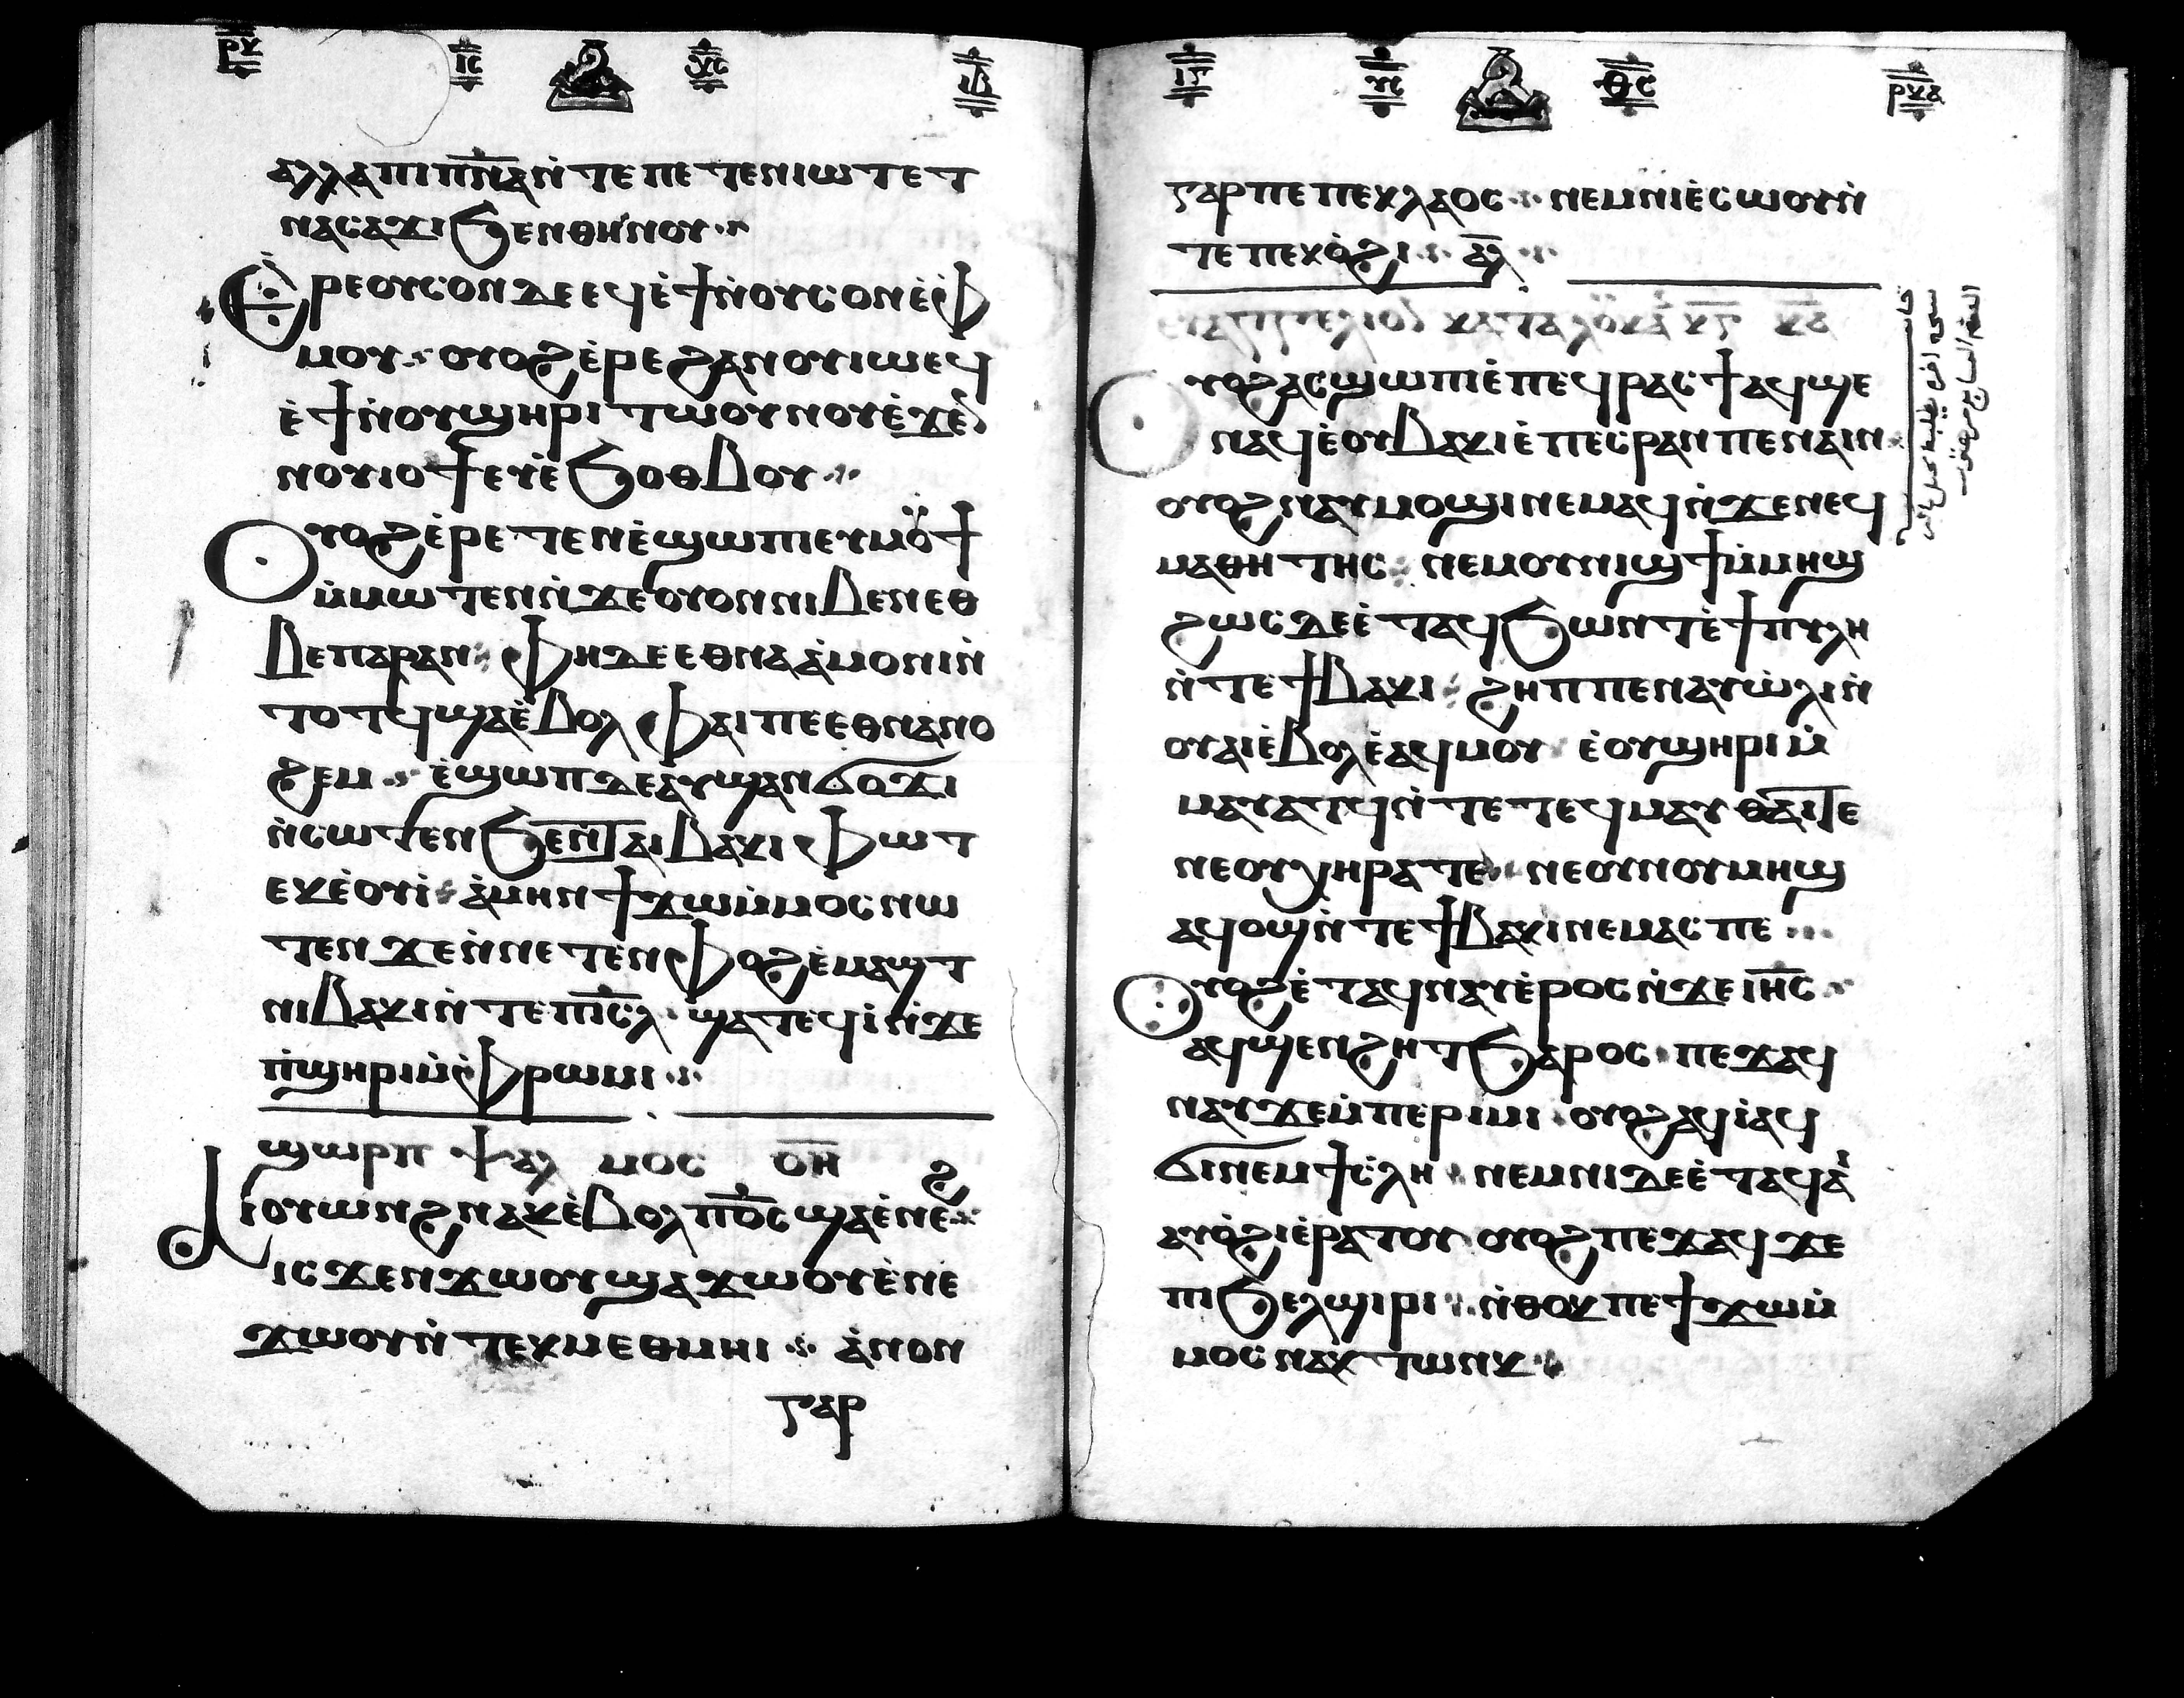 ⲣⲕ ⲓⲥ ⲩⲥ ⲓⲃ
ⲁⲗⲗⲁ ⲡⲓⲡ̅ⲛ̅ⲁ̅ ⲛ̀ⲧⲉ ⲡⲉⲧⲉⲛⲓⲱⲧ ⲉⲧ
ⲛⲁⲥⲁϫⲓ ϧⲉⲛ ⲑⲏⲛⲟⲩ
Ⲉ̀ⲣⲉ ⲟⲩⲥⲟⲛ ⲇⲉ ⲉϥⲉ̀ϯ ⲛ̀ⲟⲩⲥⲟⲛ ⲉ̀ⲫ
ⲙⲟⲩ ⲟⲩⲟϩ ⲉ̀ⲣⲉ ϩⲁⲛⲟⲩⲓⲱ ⲉϥ
ⲉ̀ϯ ⲛ̀ⲟⲩϣⲏⲣⲓ ⲧⲱⲟⲩⲛⲟⲩ ⲉ̀ϫⲉⲛ
ⲛⲟⲩⲓⲟϯ ⲉⲩⲉ̀ϧⲟⲑⲃⲟⲩ
Ⲟⲩⲟϩ ⲉ̀ⲣⲉⲧⲉⲛⲉ̀ϣⲱⲡⲓ ⲉⲩⲙⲟⲥϯ
ⲙ̀ⲙⲱⲧⲉⲛ ⲛ̀ϫⲉ ⲟⲩⲟⲛ ⲛⲓⲃⲉⲛ ⲉⲑ
ⲃⲉ ⲡⲁⲣⲁⲛ ⲫⲏ ⲇⲉ ⲉⲑⲛⲁⲁ̀ⲙⲟⲛⲓ ⲛ̀
ⲧⲟⲧϥ ϣⲁ ⲉ̀ⲃⲟⲗ ⲫⲁⲓ ⲡⲉ ⲉⲑⲛⲁⲛⲟ
ϩⲉⲙ ⲉ̀ϣⲱⲡ ⲇⲉ ⲁⲩϣⲁⲛϭⲟϫⲓ
ⲛ̀ⲥⲱⲧⲉⲛ ϧⲉⲛ ⲧⲁⲓⲃⲁⲕⲓ ⲫⲱⲧ
ⲉⲕⲉ̀ⲟⲩⲓ̀ ⲁ̀ⲙⲏⲛ ϯϫⲱ ⲙ̀ⲙⲟⲥ ⲛⲱ
ⲧⲉⲛ ϫⲉ ⲛ̀ⲛⲉⲧⲉⲛⲫⲟϩ ⲉ̀ⲙⲁϣⲧ
ⲛⲓⲃⲁⲕⲓ ⲛ̀ⲧⲉ ⲡⲓ̅ⲥ̅ⲗ̅ ϣⲁⲧⲉϥⲓ̀ ⲛ̀ϫⲉ
ⲡ̀ϣⲏⲣⲓ ⲙ̀ⲫⲣⲱⲙⲓ
ϣⲱⲣⲡ ⲯⲁⲗⲙⲟⲥ ⲟ̅ⲏ̅
Ⲁⲓⲟⲩⲱⲛϩ ⲛⲁⲕ ⲉ̀ⲃⲟⲗ ⲡ̅ⲟ̅ⲥ̅ ϣⲁ ⲉ̀ⲛⲉϩ
ⲓⲥϫⲉⲛ ϫⲱⲟⲩ ϣⲁ ϫⲱⲟⲩ ⲉ̀ⲛⲉ
ϫⲱⲟⲩ ⲛ̀ⲧⲉⲕⲙⲉⲑⲙⲏⲓ ⲁ̀ⲛⲟⲛ
ⲅⲁⲣ
ⲓⲅ ⲩⲥ ⲑⲥ ⲣⲕⲁ
ⲅⲁⲣ ⲡⲉ ⲡⲉⲕⲗⲁⲟⲥ ⲛⲉⲙ ⲛⲓⲉ̀ⲥⲱⲟⲩ ⲛ̀
ⲧⲉ ⲡⲉⲕⲟ̀ϩⲓ ⲁ̅ⲗ̅
ⲉⲩⲁⲅⲅⲉⲗⲓⲟⲛ ⲕⲁⲧⲁ ⲗⲟⲩⲕⲁⲛ ⲕ̅ⲅ̅ ⲕ̅ⲇ̅
Ⲟⲩⲟϩ ⲁⲥϣⲱⲡⲓ ⲉ̀ⲡⲉϥⲣⲁⲥϯ ⲁϥϣⲉ
ⲛⲁϥ ⲉ̀ⲟⲩⲃⲁⲕⲓ ⲉ̀ⲡⲉⲥⲣⲁⲛ ⲡⲉ ⲛⲁⲓⲛ
ⲟⲩⲟϩ ⲛⲁⲩⲙⲟϣⲓ ⲛⲉⲙⲁϥ ⲛ̀ϫⲉ ⲛⲉϥ
ⲙⲁⲑⲏⲧⲏⲥ ⲛⲉⲙ ⲟⲩⲛⲓϣϯ ⲙ̀ⲙⲏϣ
ϩⲱⲥ ⲇⲉ ⲉ̀ⲧⲁϥϧⲱⲛⲧ ⲉ̀ϯⲡⲩⲗⲏ
ⲛ̀ⲧⲉ ϯⲃⲁⲕⲓ ϩⲏⲡⲡⲉ ⲛⲁⲩⲱ̀ⲗⲓ ⲛ̀
ⲟⲩⲁⲓ ⲉ̀ⲃⲟⲗ ⲉ̀ⲁϥⲙⲟⲩ ⲉ̀ⲟⲩϣⲏⲣⲓ ⲙ̀
ⲙⲁⲩⲁⲧϥ ⲛ̀ⲧⲉ ⲧⲉϥⲙⲁⲩ ⲑⲁⲓ ⲧⲉ
ⲛⲉ ⲟⲩⲭⲏⲣⲁ ⲧⲉ ⲛⲉ ⲟⲩⲛⲟⲩⲙⲏϣ
ⲁϥⲟϣ ⲛ̀ⲧⲉ ϯⲃⲁⲕⲓ ⲛⲉⲙⲁⲥ ⲡⲉ
Ⲟⲩⲟϩ ⲉ̀ⲧⲁϥⲛⲁⲩ ⲉ̀ⲣⲟⲥ ⲛ̀ϫⲉ ⲓ̅ⲏ̅ⲥ̅
ⲁϥϣⲉⲛϩⲏⲧ ϧⲁⲣⲟⲥ ⲡⲉϫⲁϥ
ⲛⲁⲩ ϫⲉ ⲙ̀ⲡⲉⲣⲓⲙⲓ ⲟⲩⲟϩ ⲁϥⲓ̀ ⲁϥ
ϭⲓ ⲛⲉⲙ ϯⲥ̀ⲗⲏ ⲛⲉⲙ ⲛⲓ ⲇⲉ ⲉ̀ⲧⲁϥⲁ̀
ⲁⲩⲟ̀ϩⲓ ⲉ̀ⲣⲁⲧⲟⲩ ⲟⲩⲟϩ ⲡⲉϫⲁϥ ϫⲉ
ⲡⲓϧⲉⲗϣⲓⲣⲓ ⲛ̀ⲑⲟⲕ ⲡⲉ ϯϫⲱ ⲙ̀
ⲙⲟⲥ ⲛⲁⲕ ⲧⲱⲛⲕ